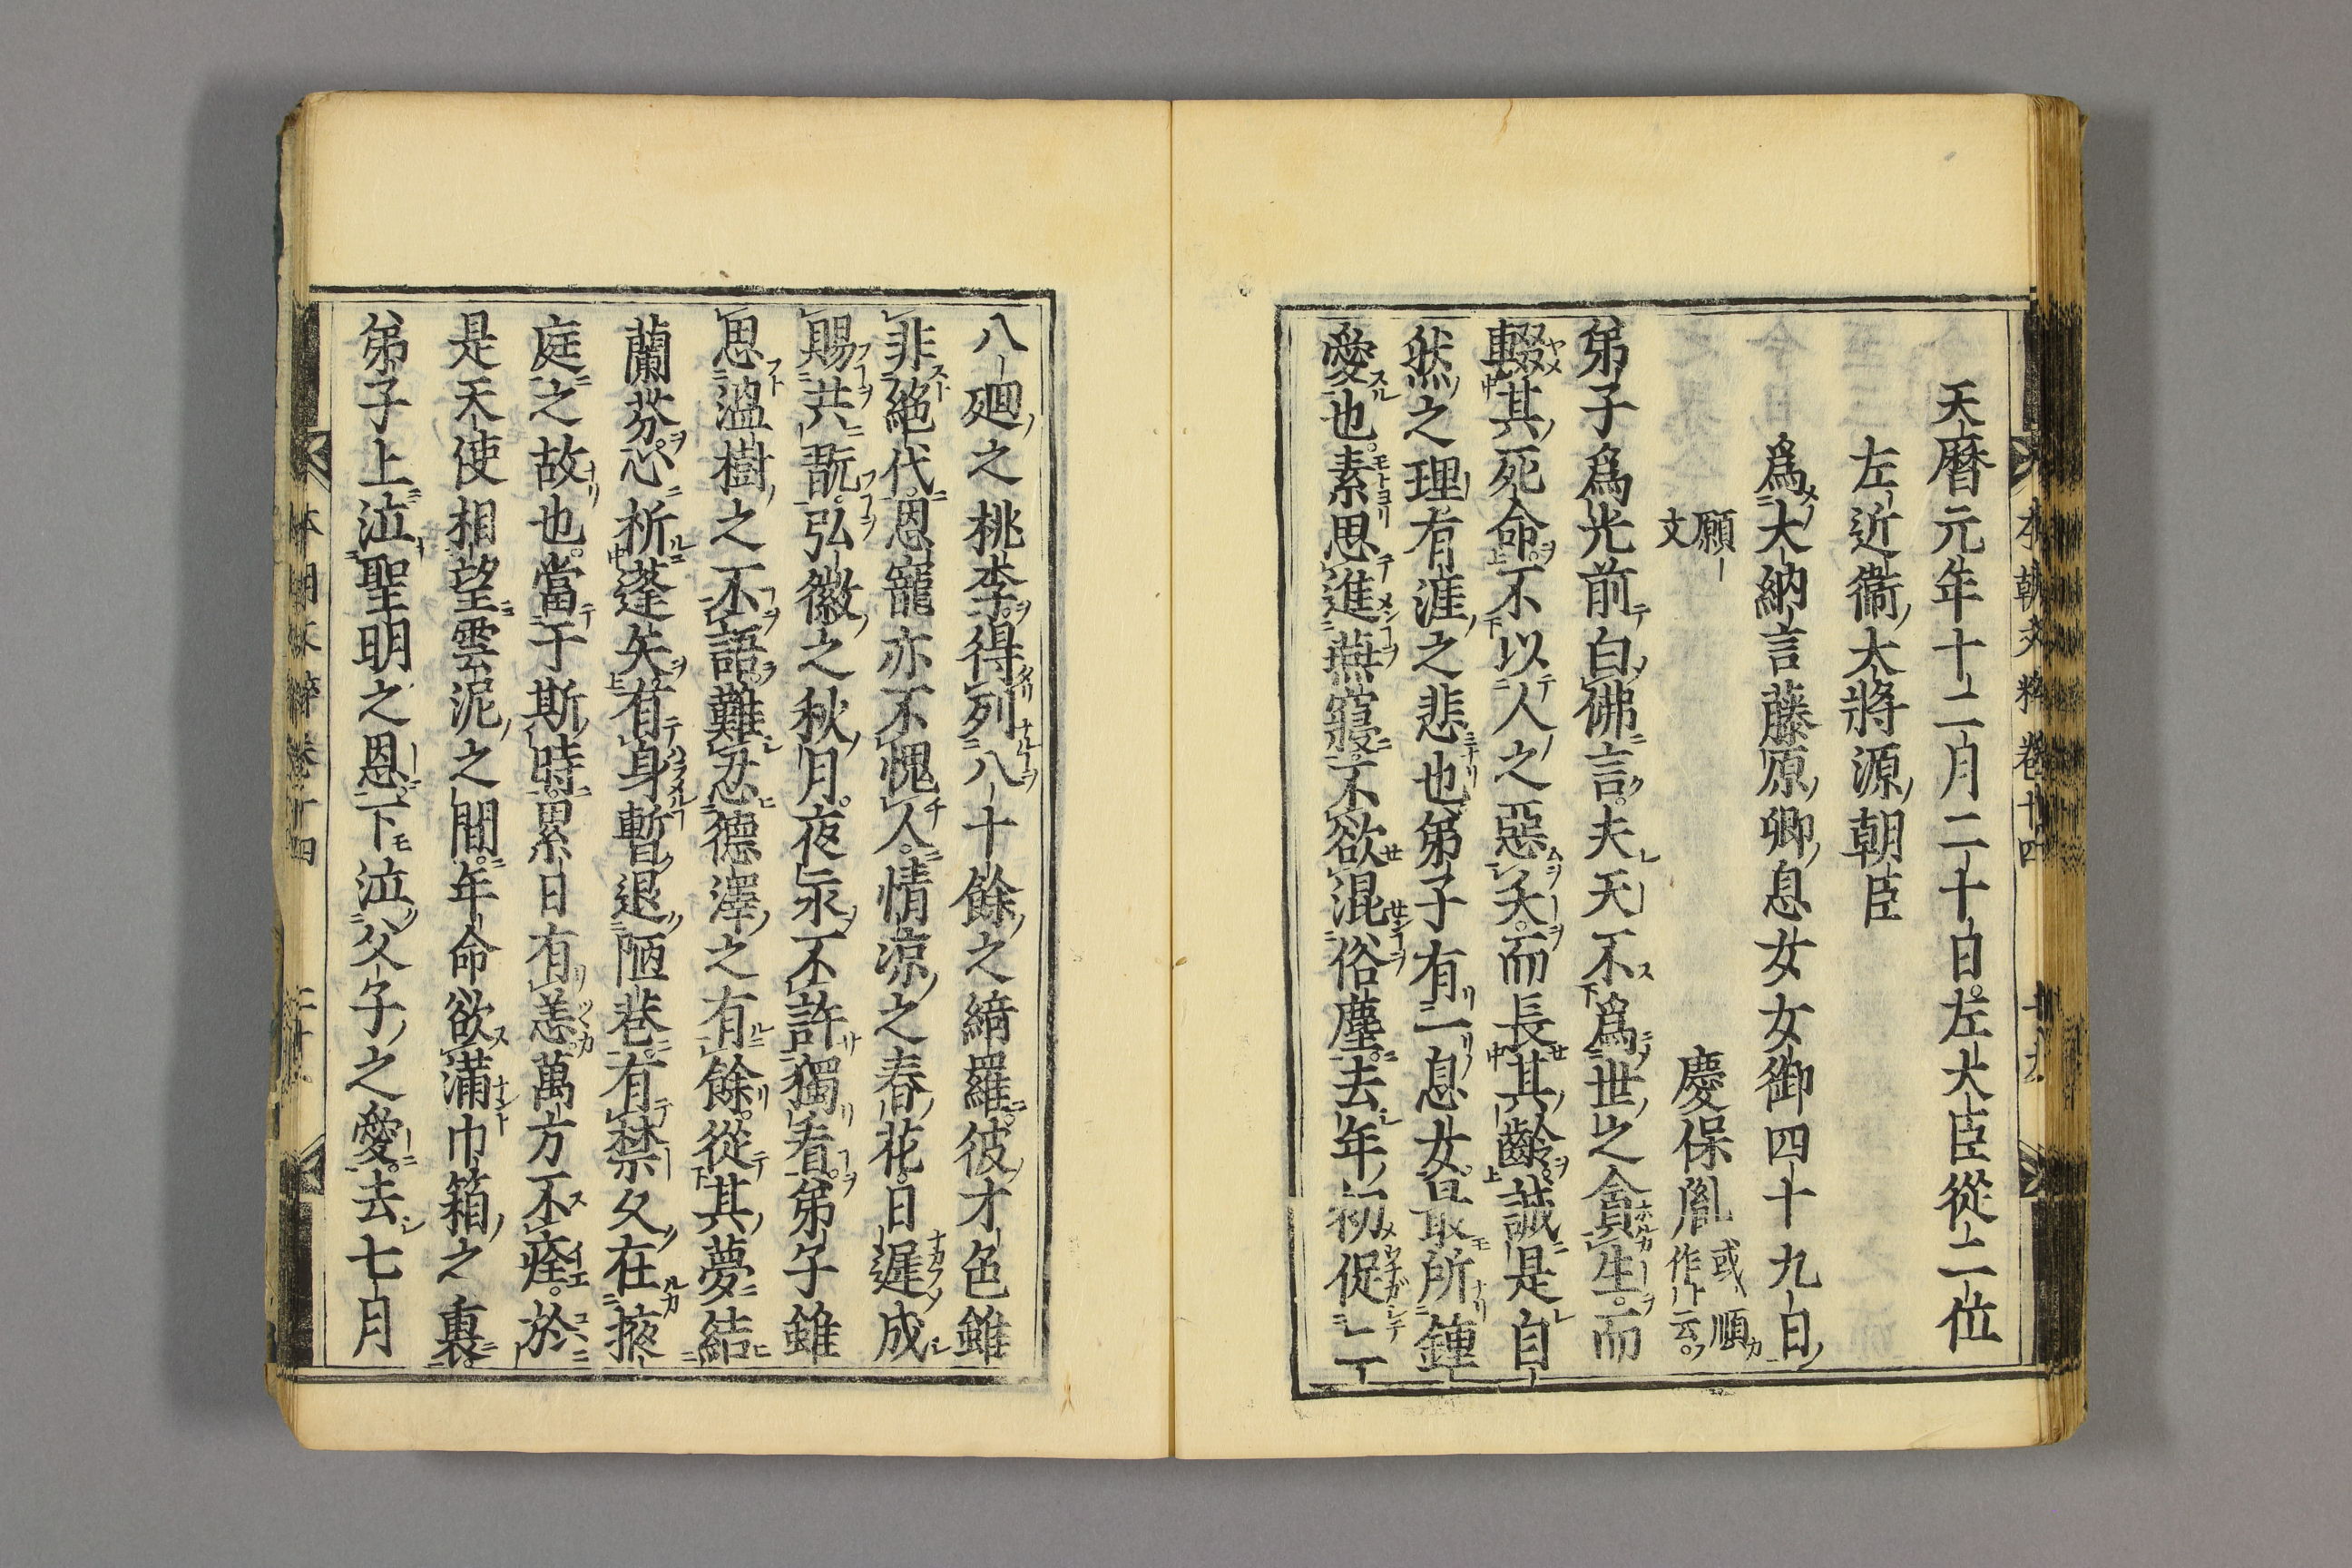 天暦元年十二月二十日左大臣從二位
左近衞大將源朝臣
爲大納言藤原卿息女女御四十九日
願文 慶保胤 或順作云
弟子爲光前白佛言夫天不爲世之貪生而
輟其死命不以人之惡夭而長其齡誠是自
然之理有涯之悲也弟子有一息女最所鍾
愛也素思進燕寢不欲混俗塵去年初促二
八廻之桃李得列八十餘之綺羅彼才色雖
非絕代恩寵亦不愧人情凉之春花日遲成
賜共翫弘徽之秋月夜永不許獨看弟子雖
思溫樹之不語難忍德澤之有餘從其夢結
蘭芬心祈蓬矢有身暫退陋巷有禁久在掖
庭之故也當于斯時累日有恙萬方不痊於
是天使相望雲泥之間年命欲滿巾箱之裏
弟子上泣聖明之恩下泣父子之愛去七月
本朝文粹卷十四
本朝文粹卷十四